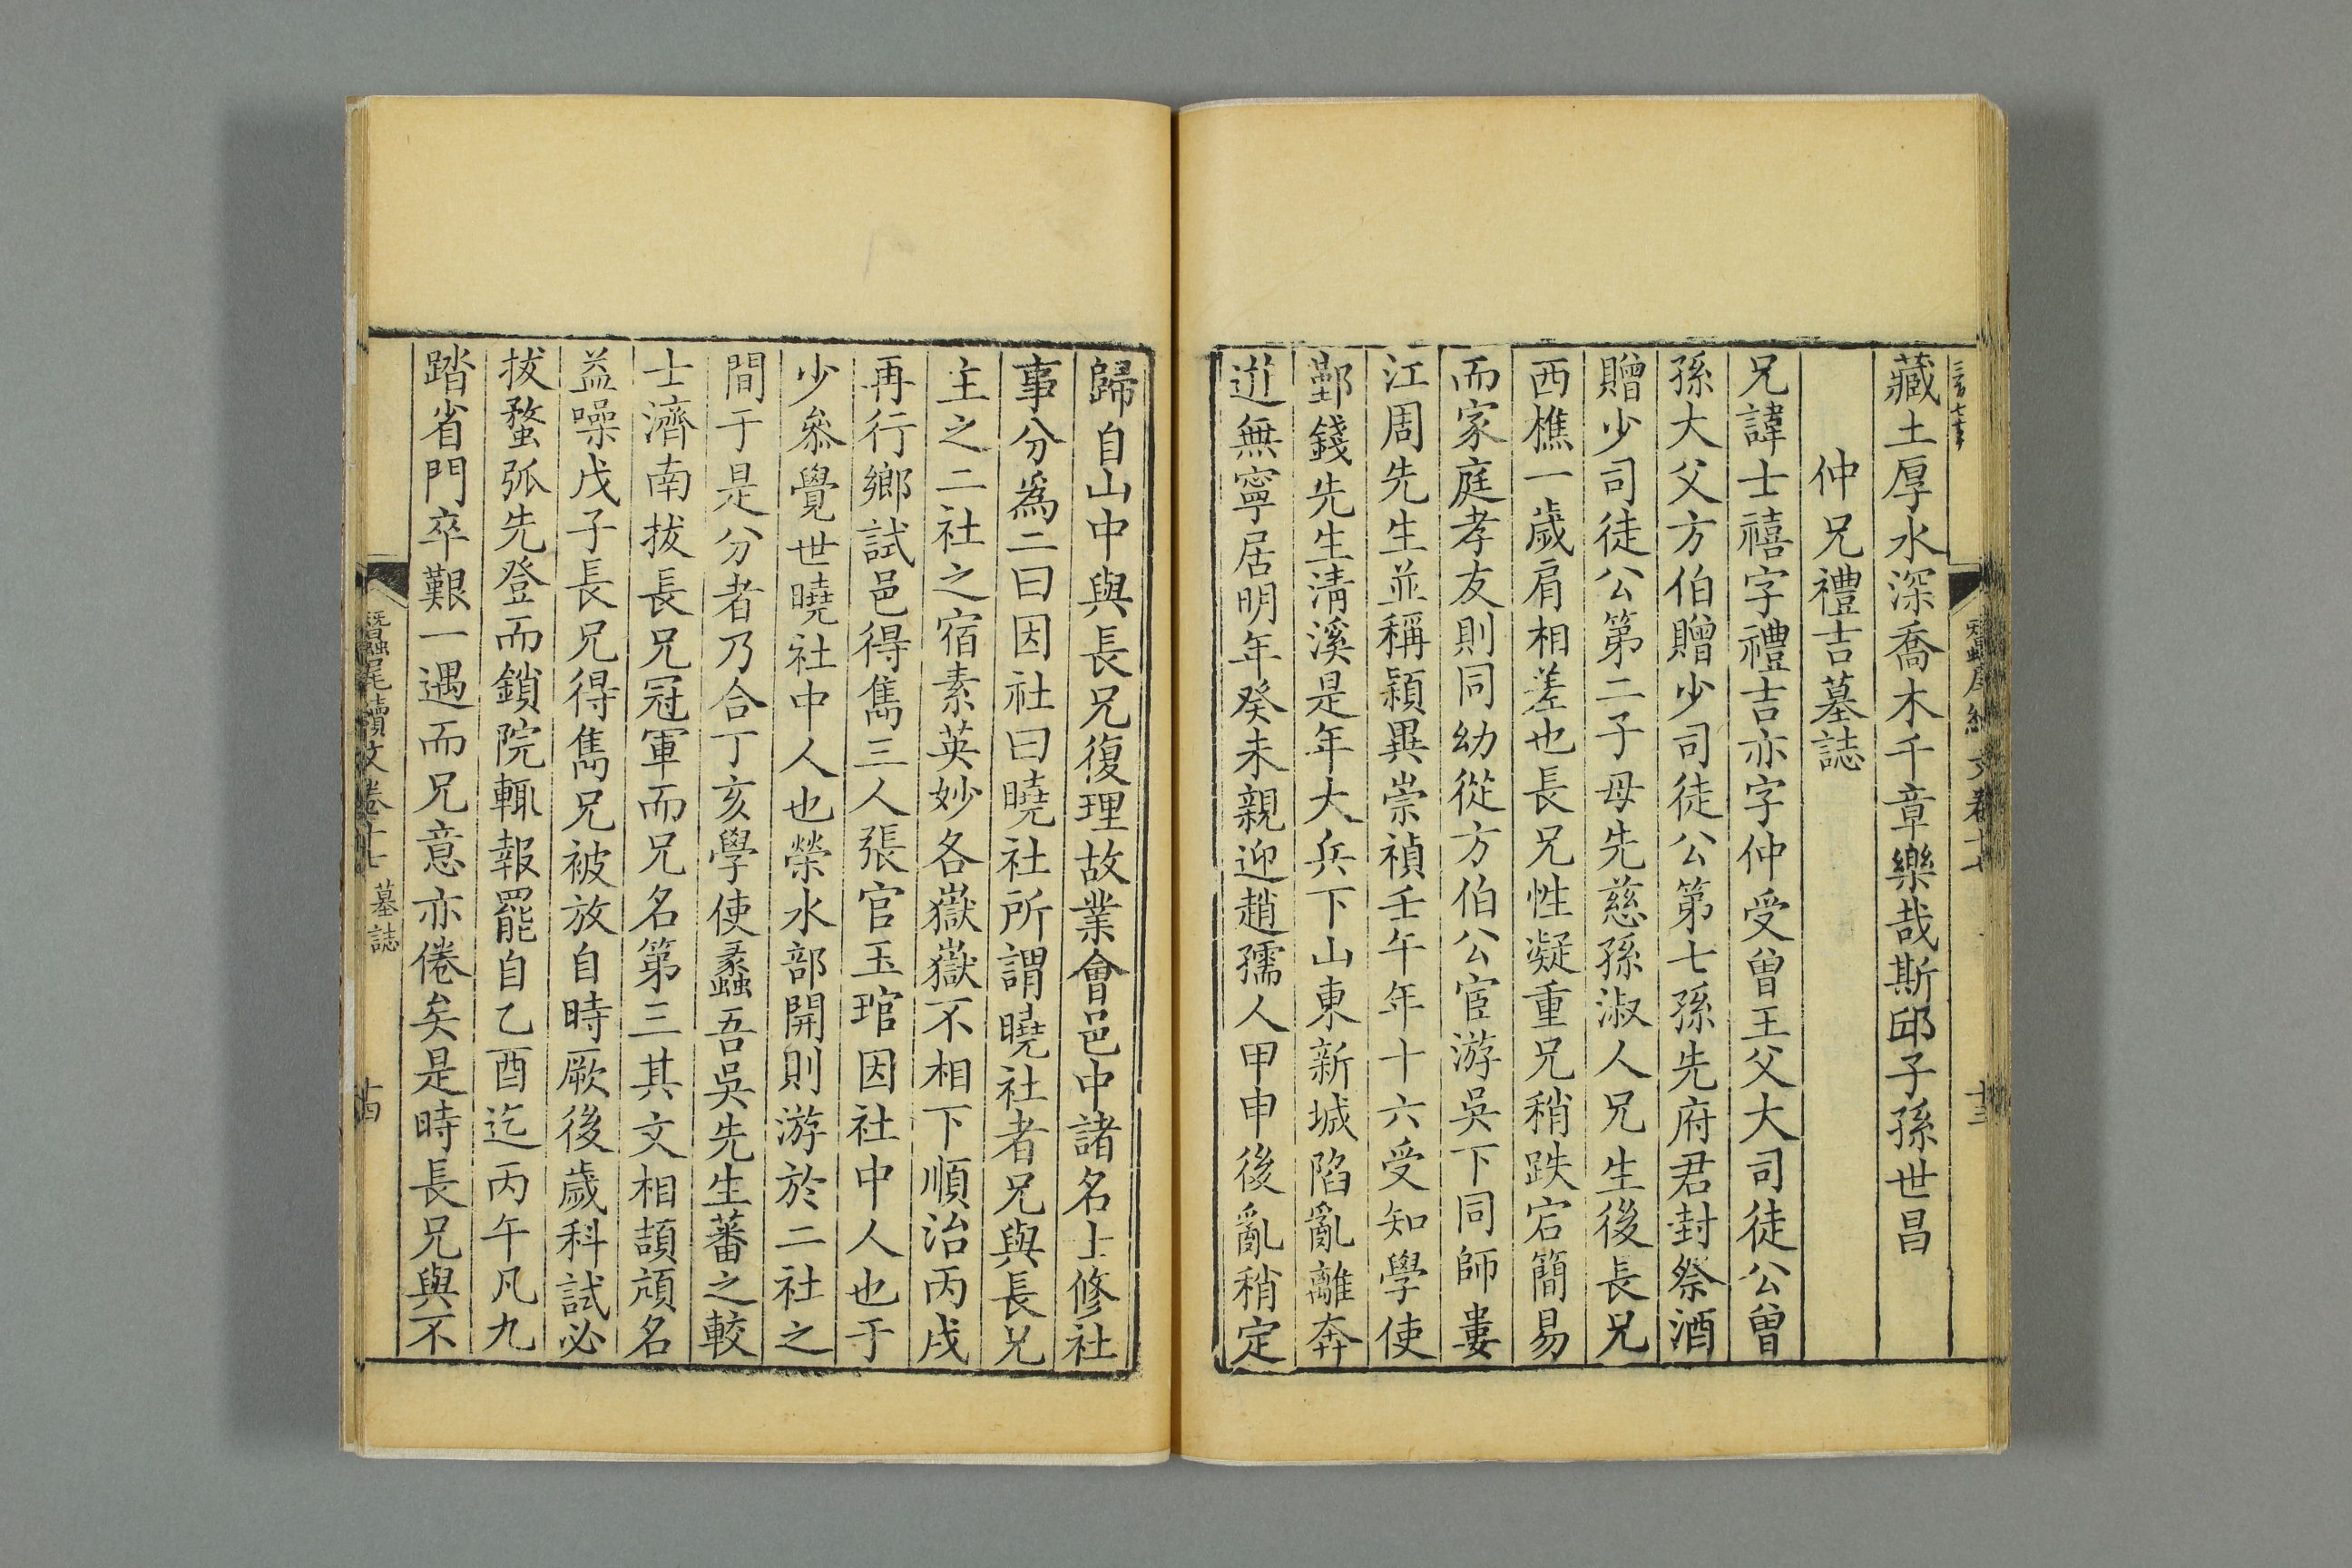 藏土厚水深喬木千章樂哉斯邱子孫世昌
仲兄禮吉墓誌
兄諱士禧字禮吉亦字仲受曾王父大司徒公曾
孫大父方伯贈少司徒公第七孫先府君封祭酒
贈少司徒公第二子母先慈孫淑人兄生後長兄
西樵一歲肩相差也長兄性凝重兄稍跌宕簡易
而家庭孝友則同幼從方伯公宦游吳下同師婁
江周先生並稱穎異崇禎壬午年十六受知學使
鄞錢先生清溪是年大兵下山東新城陷亂離奔
迸無寧居明年癸未親迎趙孺人甲申後亂稍定
歸自山中與長兄復理故業會邑中諸名士修社
事分爲二曰因社曰曉社所謂曉社者兄與長兄
主之二社之宿素英妙各嶽嶽不相下順治丙戌
再行鄉試邑得雋三人張官玉琯因社中人也于
少參覺世曉社中人也榮水部開則游於二社之
間于是分者乃合丁亥學使蠡吾吳先生蕃之較
士濟南拔長兄冠軍而兄名第三其文相頡頏名
益噪戊子長兄得雋兄被放自時厥後歲科試必
拔蝥弧先登而鎖院輒報罷自乙酉迄丙午凡九
踏省門卒艱一遇而兄意亦倦矣是時長兄與不
蠶尾續文卷十七 墓誌 十四